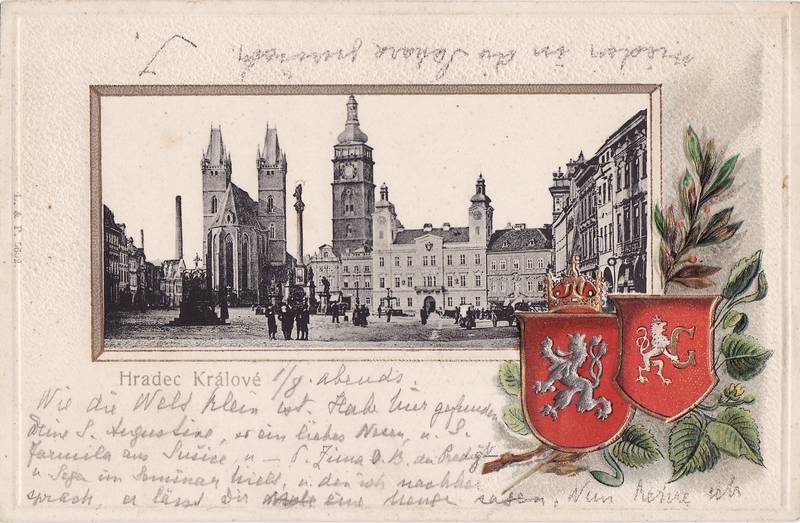 Hradec Králové 1/9. abends.
Wie die Welt klein ist. Habe hier gefunden
Deine S. Augustine, so ein liebes Wesen, u. S.
Jarmila aus Sušice, u – P. Zima S. B. der Predigt
u. Segen im Seminar hielt, u. den ich nachher
sprach, er lässt Dir eine Menge sagen. Nun kehre ich
wieder in die zurück.
L. & P.
G